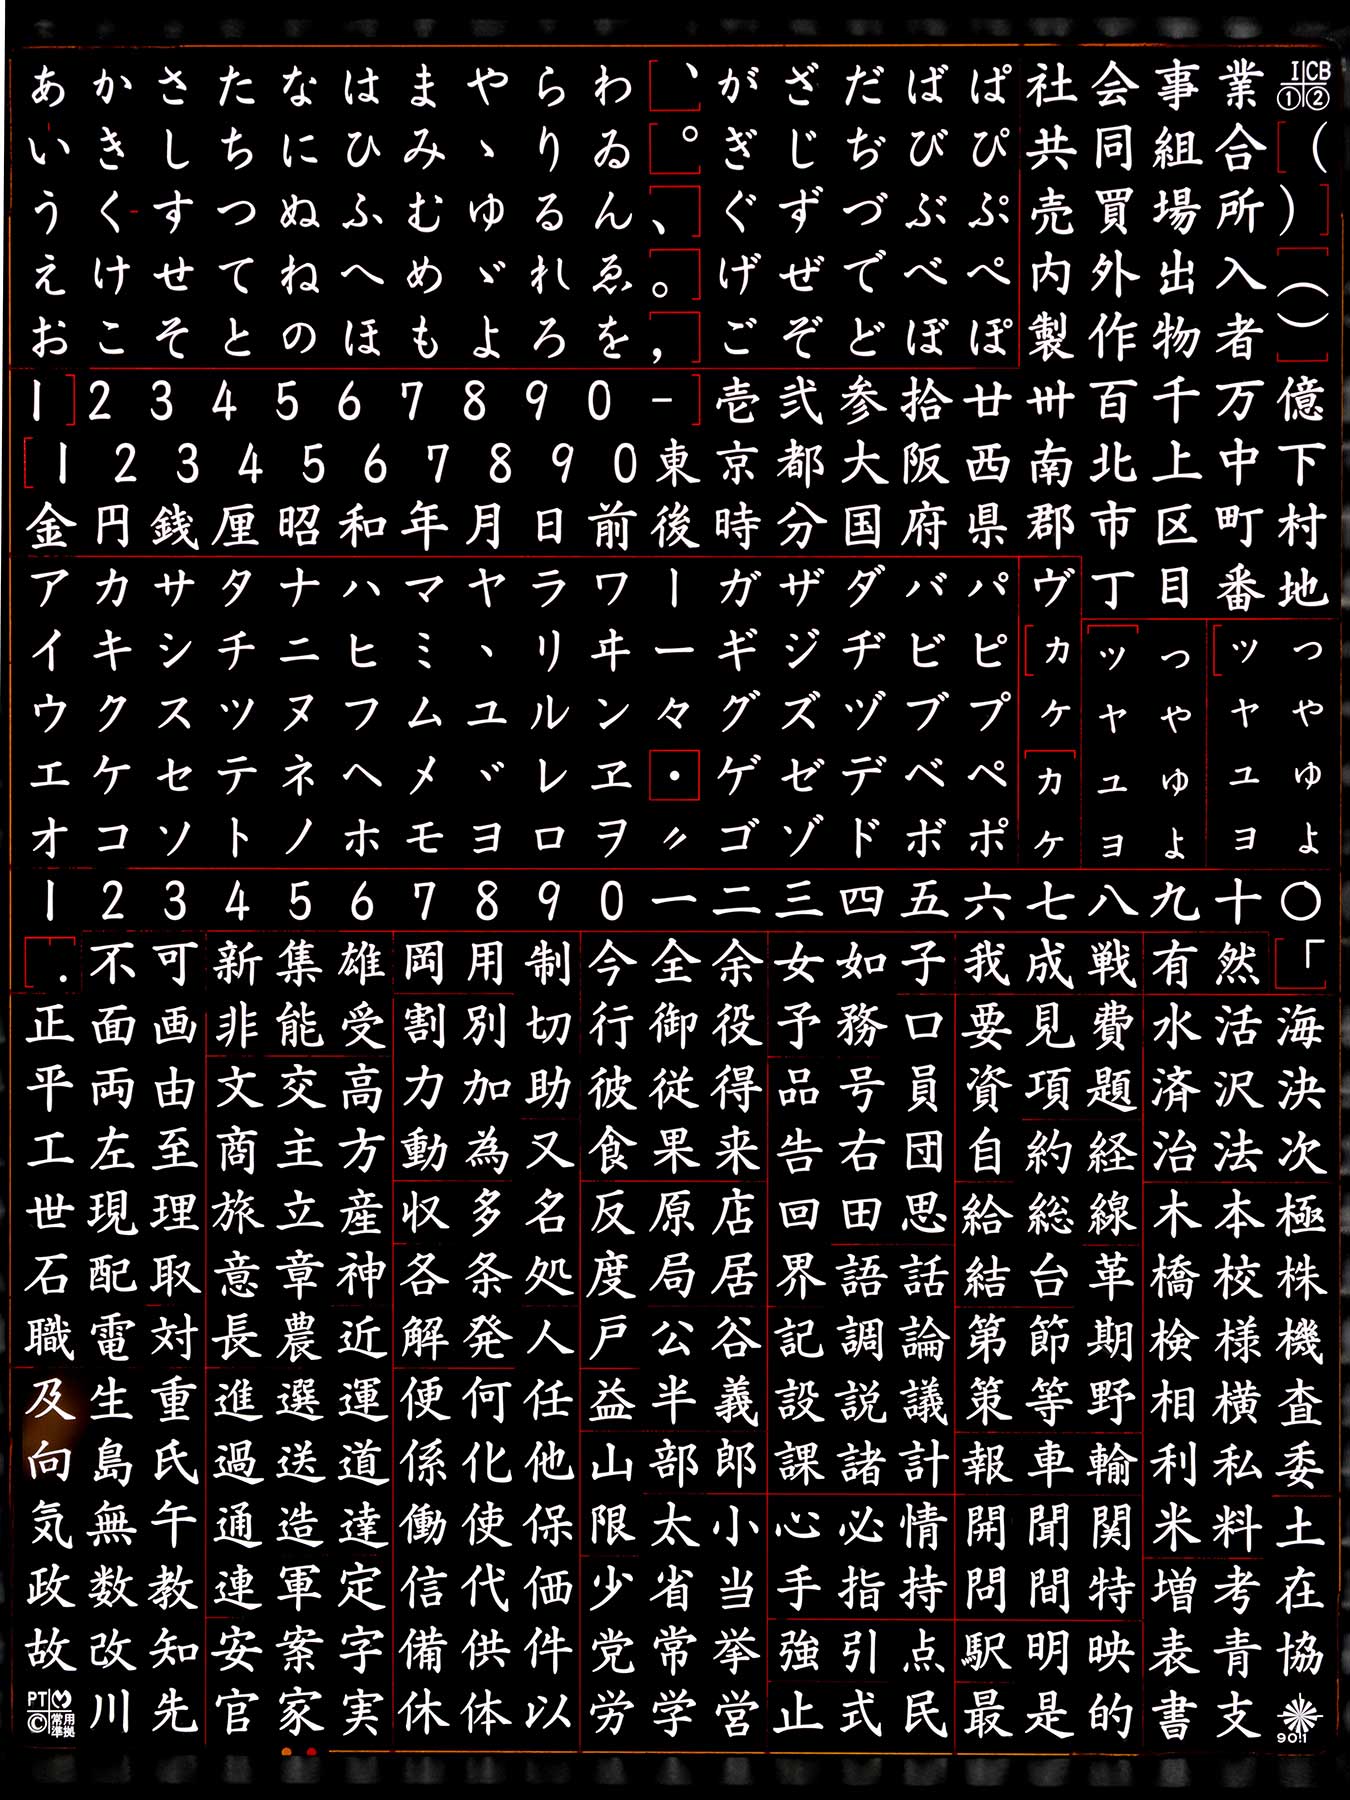 あかさたなはまやらわ、がざだばぱ社会事業 I CB ① ②
いきしちにひみゝりゐ。ぎじぢびぴ共同組合（
うくすつぬふむゆるん、ぐずづぶぷ売買場所）
えけせてねへめゞれゑ。げぜでべぺ内外出入︵
おこそとのほもよろを，ごぞどぼぽ製作物者︶
1234567890-壱弐参拾廿卅百千万億
1234567890東京都大阪西南北上中下
金円銭厘昭和年月日前後時分国府県郡市区町村
アカサタナハマヤラワ｜ガザダバパヴ丁目番地
イキシチニヒミヽリヰーギジヂビピヵッっッっ
ウクスツヌフムユルン々グズヅブプヶャゃャゃ
エケセテネヘメヾレヱ・ゲゼデベペヵュゅュゅ
オコソトノホモヨロヲ〃ゴゾドボポヶョょョょ
1234567890一二三四五六七八九十〇
．不可新集雄岡用制今全余女如子我成戦有然「
正面画非能受割別切行御役予務口要見費水活海
平両由文交高力加助彼従得品号員資項題済沢決
工左至商主方動為又食果来告右団自約経治法次
世現理旅立産収多名反原店回田思給総線木本極
石配取意章神各条処度局居界語話結台革橋校株
職電対長農近解発人戸公谷記調論第節期検様機
及生重進選運便何任益半義設説議策等野相横査
向島氏過送道係化他山部郎課諸計報車輸利私委
気無午通造達働使保限太小心必情開聞関米料土
政数教連軍定信代価少省当手指持問間特増考在
故改知安案字備供件党常挙強引点駅明映表青協
PT © 常用準拠 川先官家実休体以労学営止式民最是的書支 90.1